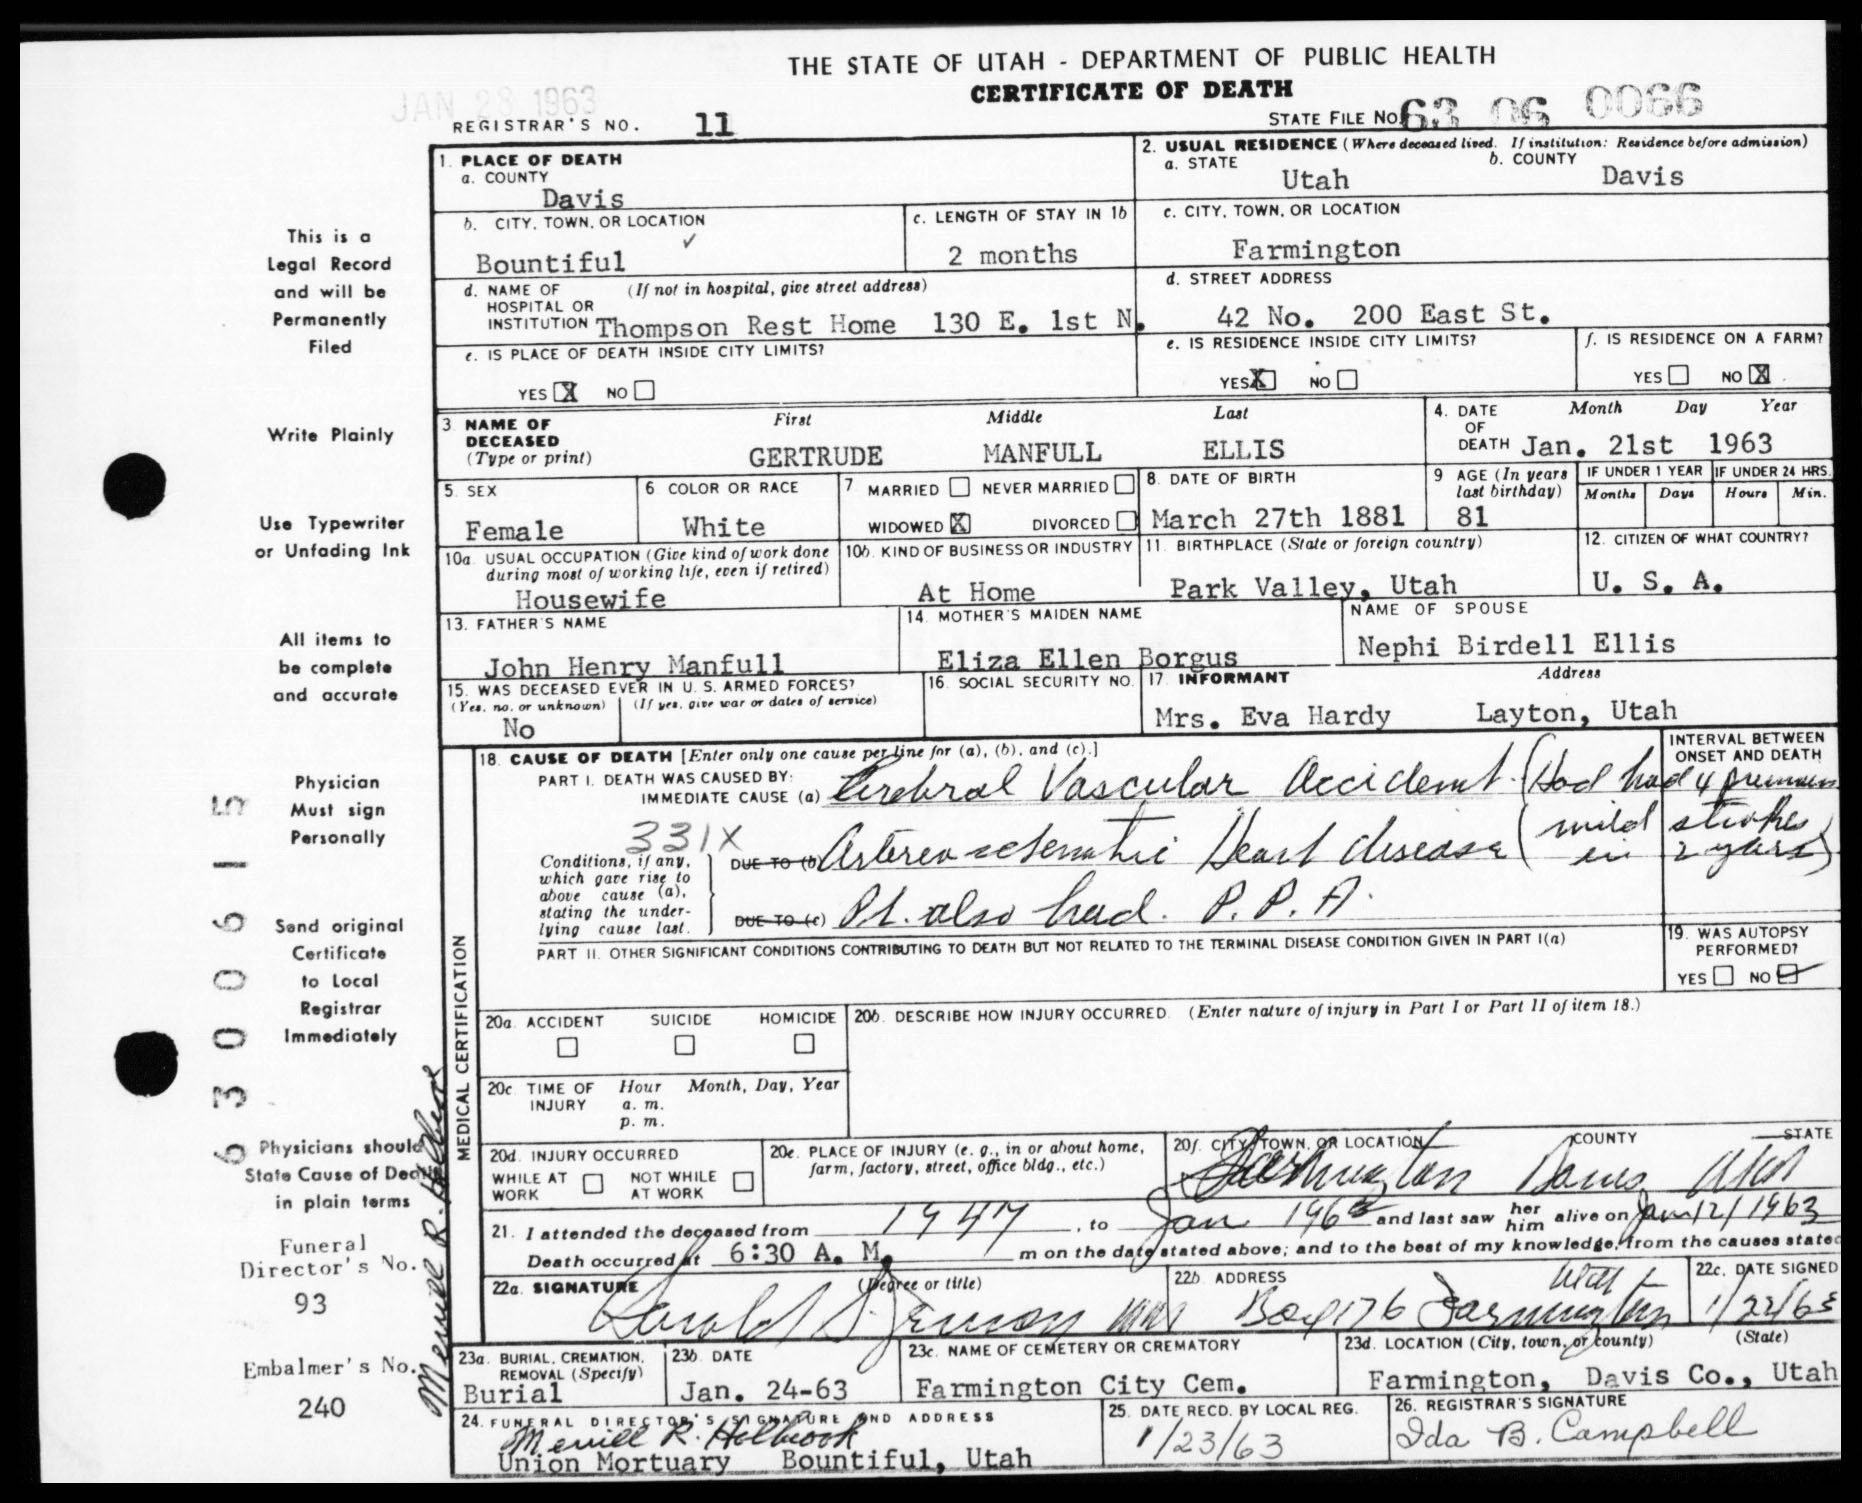 THE STATE OF UTAH - DEPARTMENT OF PUBLIC HEALTH
CERTIFICATE OF DEATH
JAN 28 1963
REGISTRAR'S NO. 11
STATE FILE NO. 63 06 0066
1. PLACE OF DEATH
a. COUNTY
Davis
2. USUAL RESIDENCE (Where deceased lived. If institution: Residence before admission)
a. STATE b. COUNTY
Utah Davis
b. CITY, TOWN, OR LOCATION
Bountiful ✓
c. LENGTH OF STAY IN 1b
2 months
c. CITY, TOWN, OR LOCATION
Farmington
d. NAME OF (If not in hospital, give street address)
HOSPITAL OR
INSTITUTION Thompson Rest Home 130 E. 1st N.
d. STREET ADDRESS
42 No. 200 East St.
e. IS PLACE OF DEATH INSIDE CITY LIMITS?
YES X NO
e. IS RESIDENCE INSIDE CITY LIMITS?
YES X NO
f. IS RESIDENCE ON A FARM?
YES NO X
3. NAME OF
DECEASED
(Type or print)
First Middle Last
GERTRUDE MANFULL ELLIS
4. DATE
OF
DEATH
Month Day Year
Jan. 21st 1963
5. SEX
Female
6 COLOR OR RACE
White
7 MARRIED NEVER MARRIED
WIDOWED X DIVORCED
8. DATE OF BIRTH
March 27th 1881
9 AGE (In years
last birthday)
81
IF UNDER 1 YEAR
Months Days
IF UNDER 24 HRS.
Hours Min.
10a. USUAL OCCUPATION (Give kind of work done
during most of working life, even if retired)
Housewife
10b. KIND OF BUSINESS OR INDUSTRY
At Home
11. BIRTHPLACE (State or foreign country)
Park Valley, Utah
12. CITIZEN OF WHAT COUNTRY?
U. S. A.
13. FATHER'S NAME
John Henry Manfull
14. MOTHER'S MAIDEN NAME
Eliza Ellen Borgus
NAME OF SPOUSE
Nephi Birdell Ellis
15. WAS DECEASED EVER IN U. S. ARMED FORCES?
(Yes, no, or unknown) (If yes, give war or dates of service)
No
16. SOCIAL SECURITY NO.
17. INFORMANT Address
Mrs. Eva Hardy Layton, Utah
MEDICAL CERTIFICATION
18. CAUSE OF DEATH [Enter only one cause per line for (a), (b), and (c).]
INTERVAL BETWEEN
ONSET AND DEATH
PART I. DEATH WAS CAUSED BY:
IMMEDIATE CAUSE (a) Cerebral Vascular Accident (Had had 4
331X
Conditions, if any,
which gave rise to
above cause (a),
stating the under-
lying cause last.
DUE TO (b) Arteriosclerotic Heart disease (mild strokes
in 2 years)
DUE TO (c) Pt. also had P. P. A.
PART II. OTHER SIGNIFICANT CONDITIONS CONTRIBUTING TO DEATH BUT NOT RELATED TO THE TERMINAL DISEASE CONDITION GIVEN IN PART I(a)
19. WAS AUTOPSY
PERFORMED?
YES NO ✓
20a. ACCIDENT SUICIDE HOMICIDE
20b. DESCRIBE HOW INJURY OCCURRED. (Enter nature of injury in Part I or Part II of item 18.)
20c TIME OF Hour Month, Day, Year
INJURY a. m.
p. m.
20d. INJURY OCCURRED
WHILE AT NOT WHILE
WORK AT WORK
20e. PLACE OF INJURY (e. g., in or about home,
farm, factory, street, office bldg., etc.)
20f. CITY, TOWN, OR LOCATION COUNTY STATE
Farmington Davis Utah
21. I attended the deceased from 1947, to Jan 1963 and last saw her him alive on Jan 12/1963
Death occurred at 6:30 A. M. m on the date stated above; and to the best of my knowledge, from the causes stated
22a. SIGNATURE (Degree or title)
22b. ADDRESS
Box 176 Farmington Utah
22c. DATE SIGNED
1/22/63
23a. BURIAL, CREMATION,
REMOVAL (Specify)
Burial
23b. DATE
Jan. 24-63
23c. NAME OF CEMETERY OR CREMATORY
Farmington City Cem.
23d. LOCATION (City, town, or county) (State)
Farmington, Davis Co., Utah
24. FUNERAL DIRECTOR'S SIGNATURE AND ADDRESS
Merrill R. Holbrook
Union Mortuary Bountiful, Utah
25. DATE RECD. BY LOCAL REG.
1/23/63
26. REGISTRAR'S SIGNATURE
Ida B. Campbell
This is a
Legal Record
and will be
Permanently
Filed
Write Plainly
Use Typewriter
or Unfading Ink
All items to
be complete
and accurate
Physician
Must sign
Personally
Send original
Certificate
to Local
Registrar
Immediately
Physicians should
State Cause of Death
in plain terms
Funeral
Director's No.
93
Embalmer's No.
240
63006151
Merrill R. Holbrook